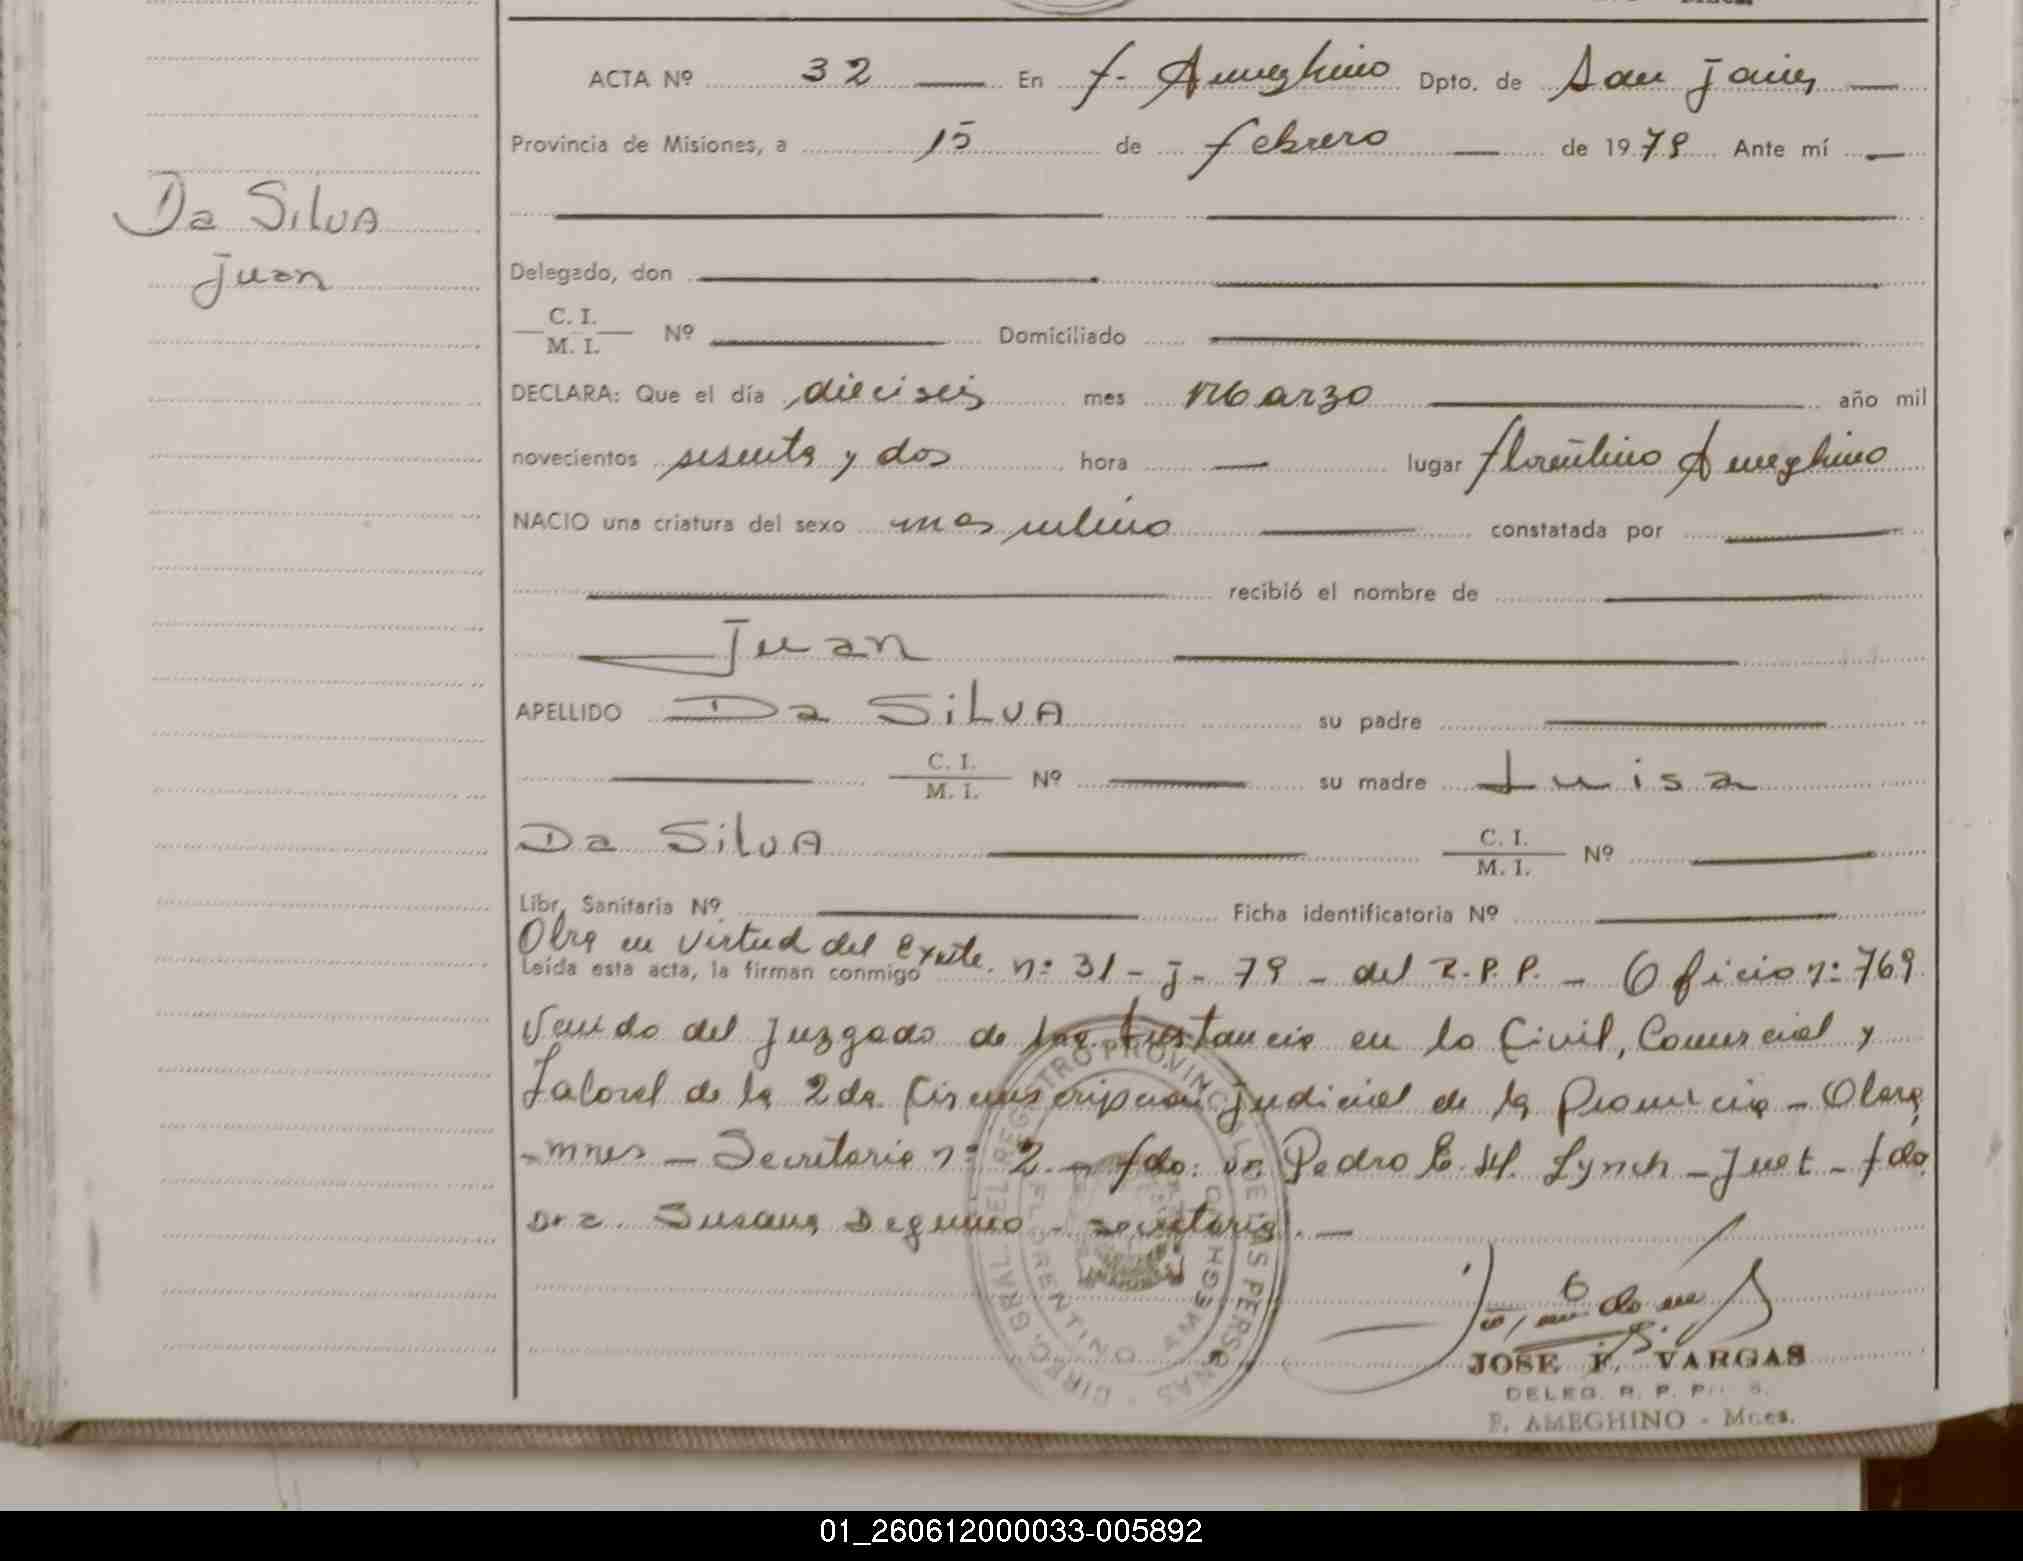 ACTA Nº 32 En F. Ameghino Dpto. de San Javier
Provincia de Misiones, a 15 de febrero de 1979 Ante mí
Da Silva
Juan
Delegado, don
C. I.
M. I. Nº Domiciliado
DECLARA: Que el día dieciseis mes Marzo año mil
novecientos sesenta y dos hora lugar Florentino Ameghino
NACIO una criatura del sexo masculino constatada por
recibió el nombre de
Juan
APELLIDO Da Silva su padre
C. I.
M. I. Nº su madre Luisa
Da Silva C. I.
M. I. Nº
Libr. Sanitaria Nº Ficha identificatoria Nº
Obra en virtud del Expte. nº 31-J-79 - del R.P.P. - Oficio nº 769
Leída esta acta, la firman conmigo
Venido del Juzgado de 1ra. Instancia en lo Civil, Comercial y
Laboral de la 2da. Circunscripcion Judicial de la Provincia - Obera
-mnes - Secretaria nº 2. - fdo: Dr. Pedro E. M. Lynch - Juez - fdo
Dra. Susana - secretaria. -
DIREC. GRAL. DEL REGISTRO PROVINCIAL DE LAS PERSONAS
FLORENTINO AMEGHINO
JOSE F. VARGAS
DELEG. R. P. P.
F. AMEGHINO - Mnes.
01_260612000033-005892